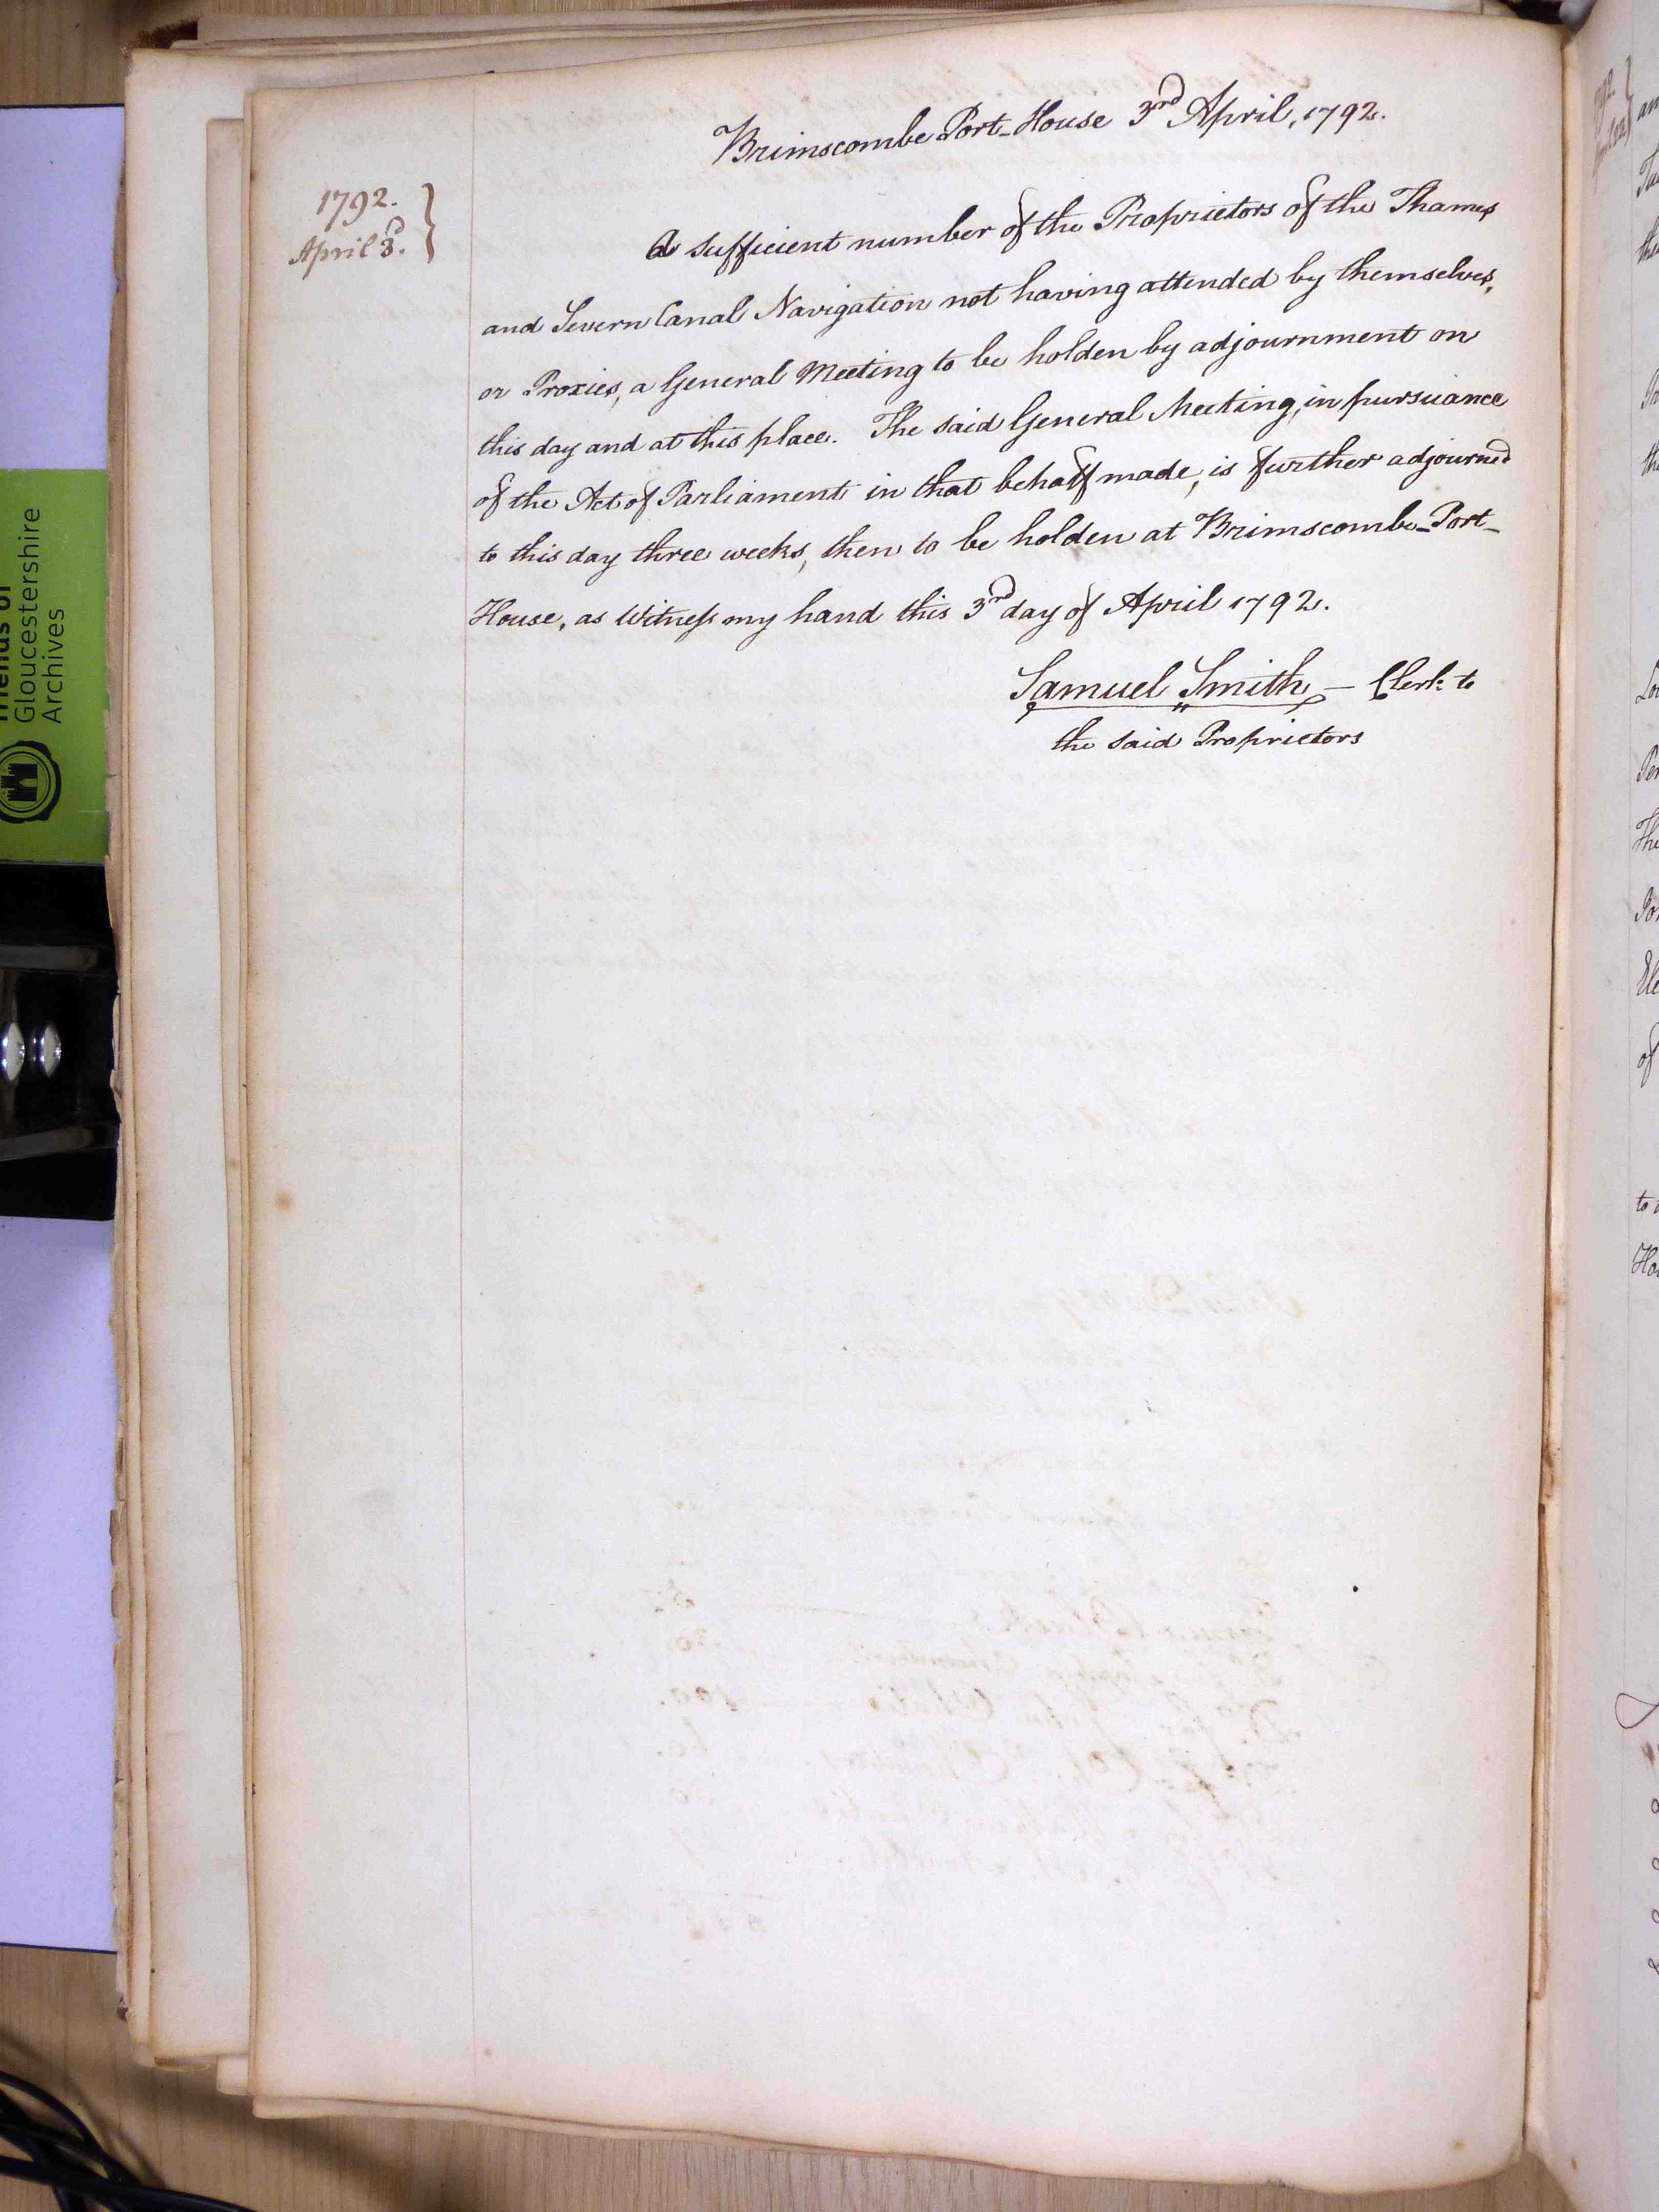 Brimscombe Port-House 3rd April, 1792.
1792.
April 3d.
A sufficient number of the Proprietors of the Thames
and Severn Canal Navigation not having attended by themselves,
or Proxies, a General Meeting to be holden by adjournment on
this day and at this place. The said General Meeting, in pursuance
of the Act of Parliament in that behalf made, is further adjourned
to this day three weeks, then to be holden at Brimscombe-Port-
House, as Witness my hand this 3rd day of April 1792.
Samuel Smith — Clerk to
the said Proprietors
Friends of
Gloucestershire
Archives